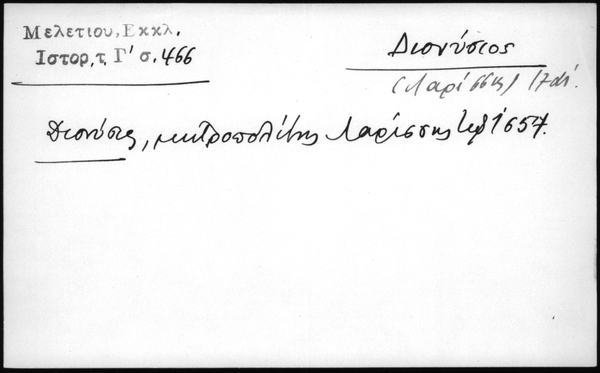 Μελετίου, Εκκλ.
Ιστορ, τ. Γ' σ. 466
Διονύσιος
(Λαρίσσης) 17αι.
Διονύσιος, μητροπολίτης Λαρίσσης 1657.